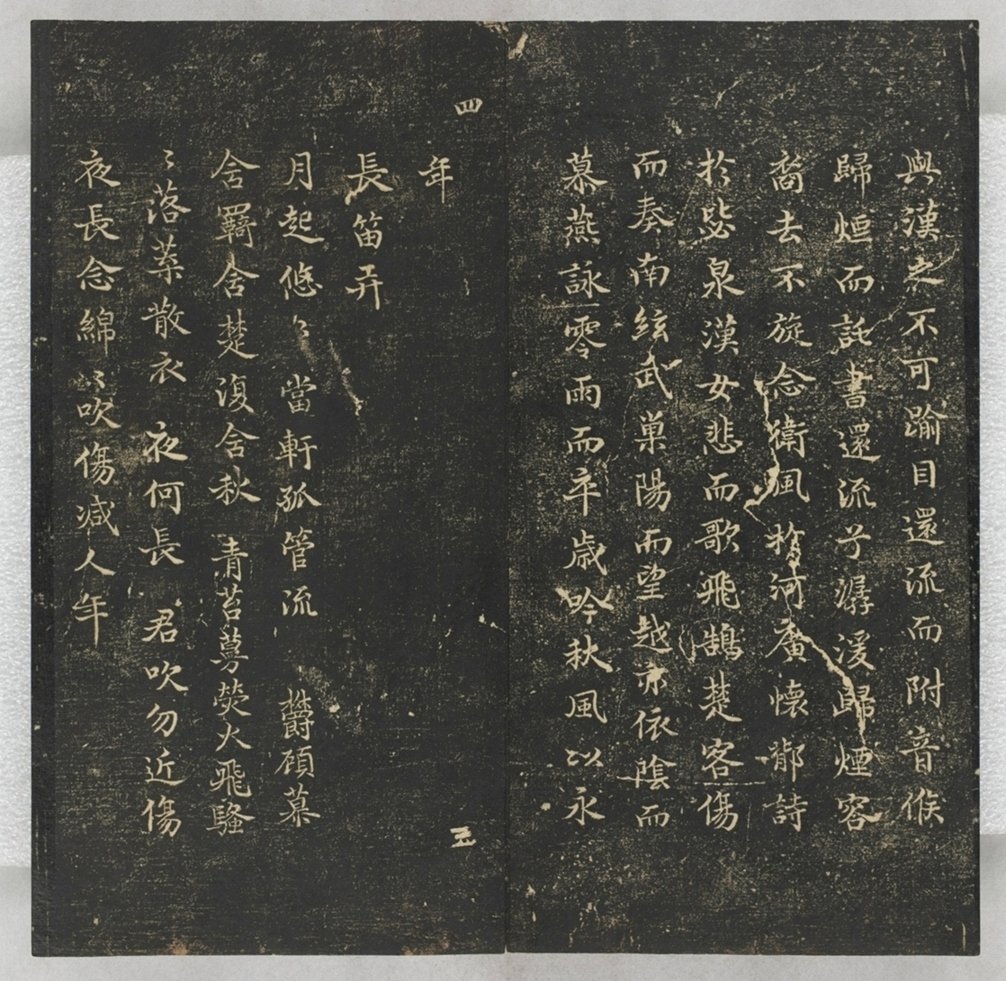 與漢之不可踰目還流而附音候
歸烟而託書還流兮潺湲歸煙容
裔去不旋念衛風於河廣懷邶詩
於毖泉漢女悲而歌飛鵠楚客傷
而奏南絃武巢陽而望越亦依陰而
慕燕詠零雨而卒歲吟秋風以永
四
五
年
長笛弄
月起悠〻當軒孤管流 鬱顧慕
含羇含楚復含秋 青苔蔓熒火飛騷
〻落葉散衣 夜何長 君吹勿近傷
夜長念綿〻吹傷減人年